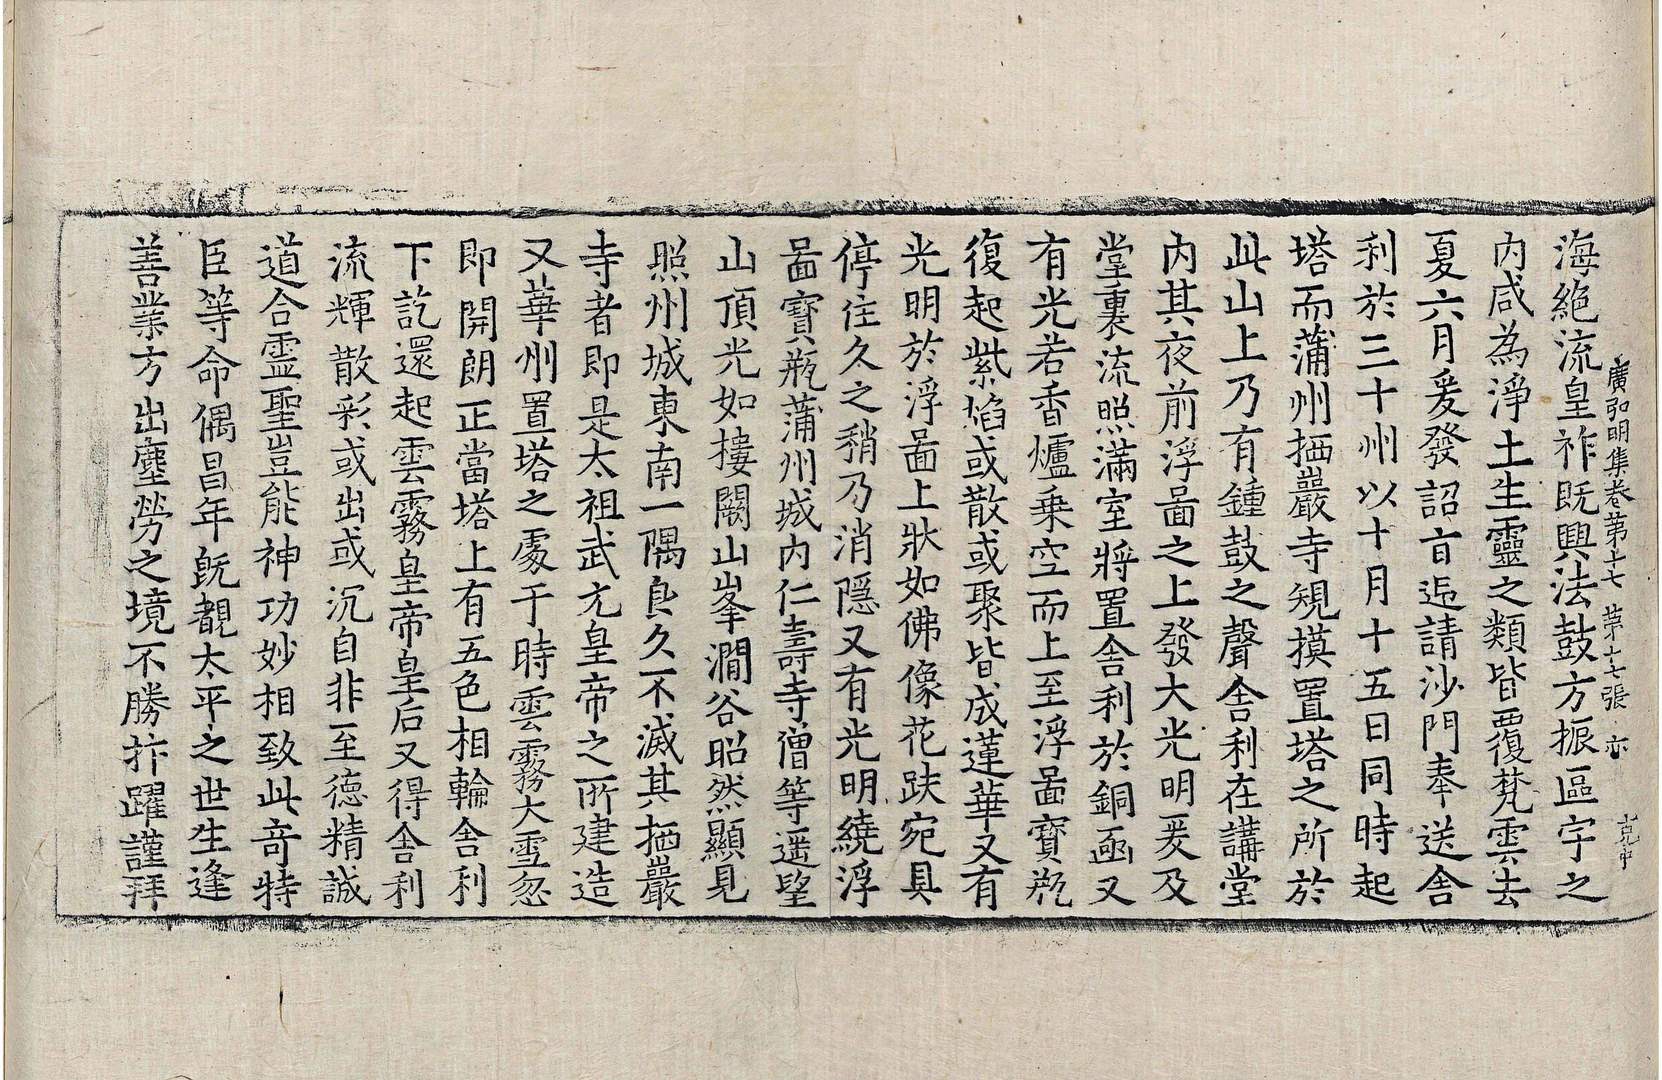 廣弘明集卷第十七 第十七張 亦
克中
海絕流皇祚既興法鼓方振區宇之
內咸為淨土生靈之類皆覆梵雲去
夏六月爰發詔旨延請沙門奉送舍
利於三十州以十月十五日同時起
塔而蒲州栖巖寺規摸置塔之所於
此山上乃有鍾鼓之聲舍利在講堂
內其夜前浮啚之上發大光明爰及
堂裏流照滿室將置舍利於銅函又
有光若香爐乗空而上至浮啚寶瓶
復起紫焰或散或聚皆成蓮華又有
光明於浮啚上狀如佛像花趺宛具
停住久之稍乃消隱又有光明繞浮
啚寶瓶蒲州城內仁壽寺僧等遥望
山頂光如樓闕山峯澗谷昭然顯見
照州城東南一隅良久不滅其栖巖
寺者即是太祖武元皇帝之所建造
又華州置塔之處于時雲霧大雪忽
即開朗正當塔上有五色相輪舍利
下訖還起雲霧皇帝皇后又得舍利
流輝散彩或出或沉自非至德精誠
道合霊聖豈能神功妙相致此竒特
臣等命偶昌年既覩太平之世生逢
善業方出塵勞之境不勝抃躍謹拜